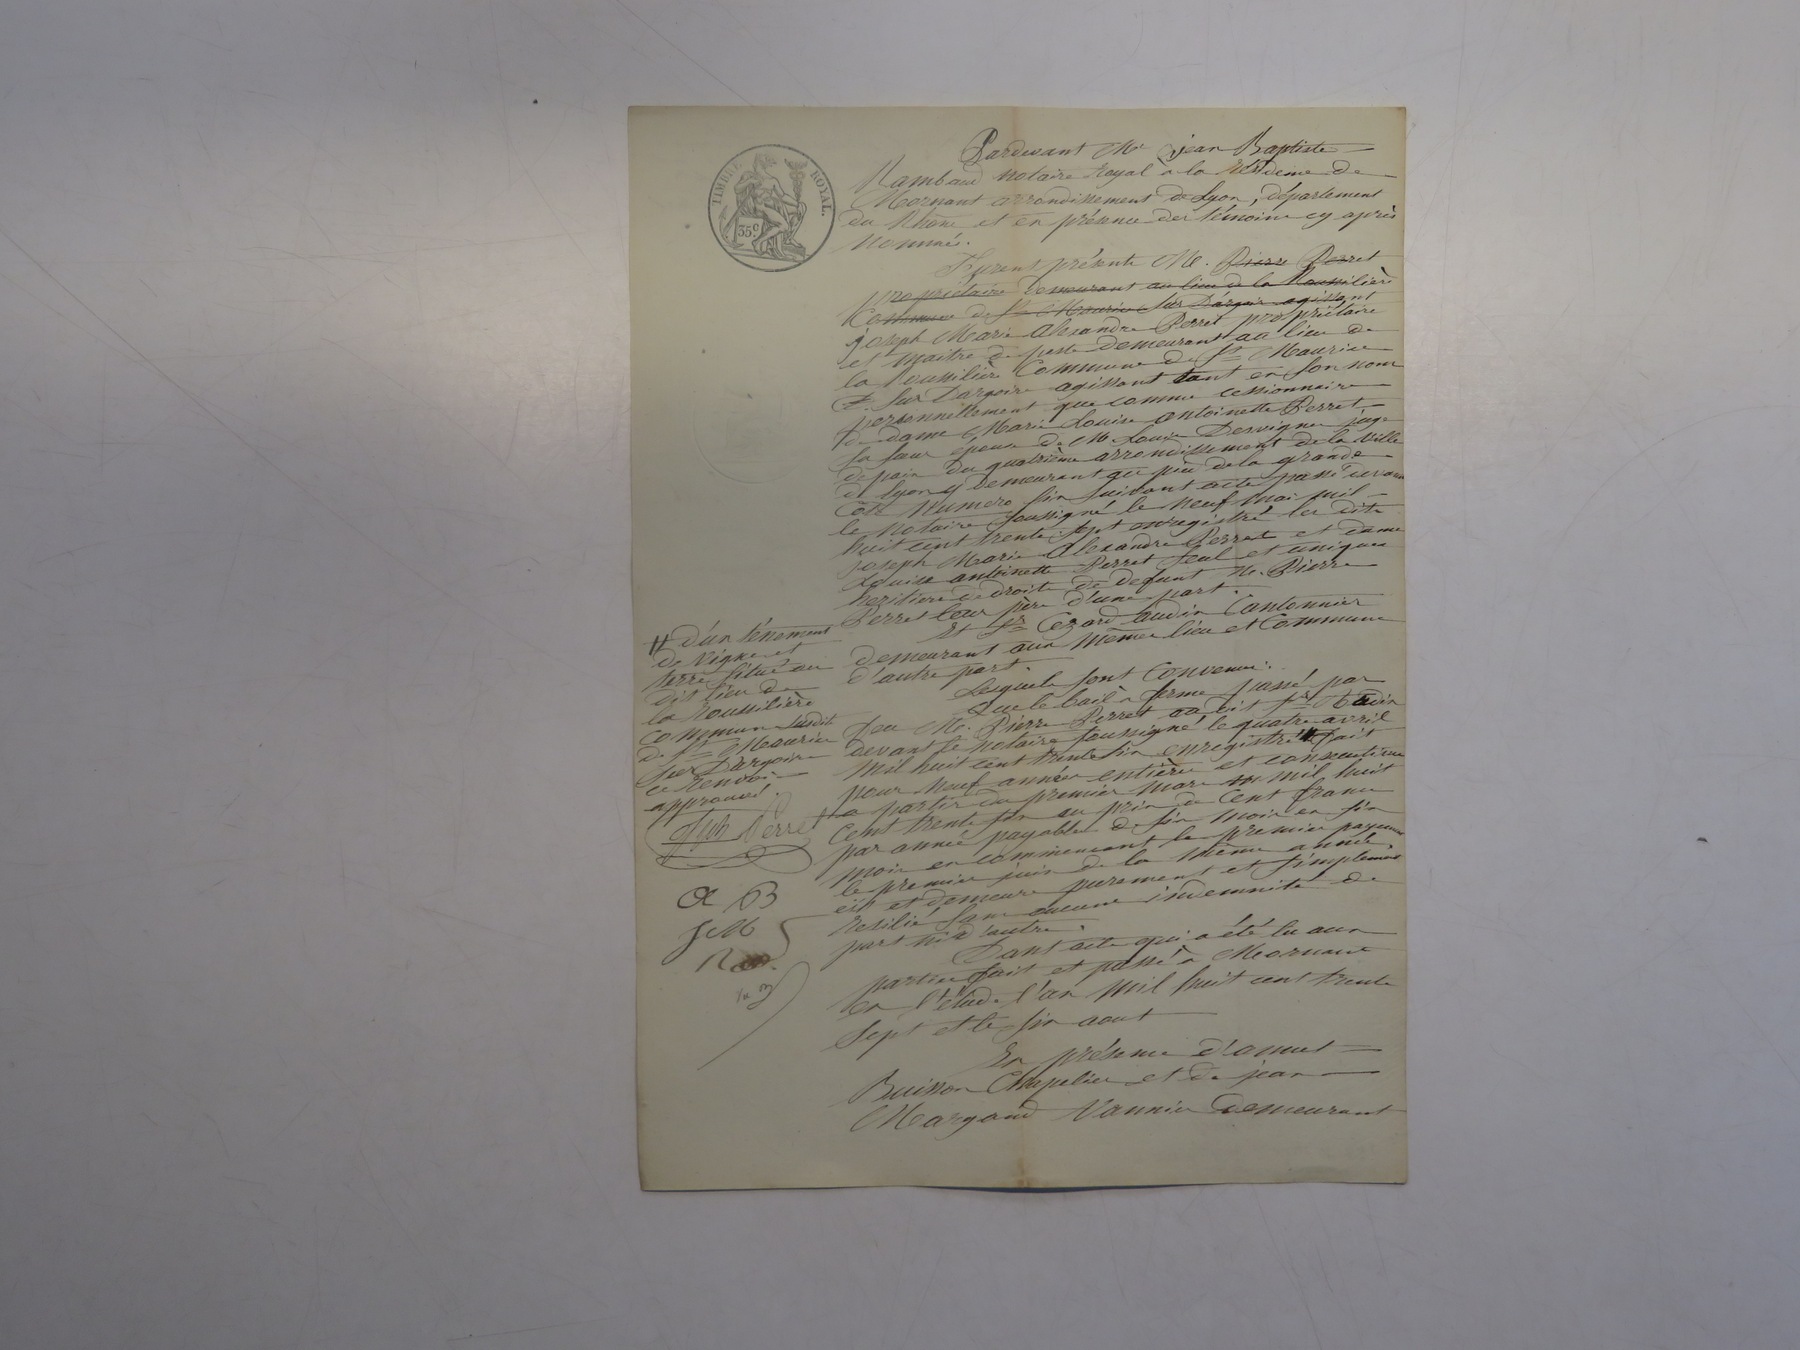 TIMBRE ROYAL.
35c
Pardevant Me jean Baptiste
Rambaud notaire Royal à la Résidence de
Mornant arrondissement de Lyon, département
du Rhône et en présence des témoins cy après
nommés.
Furent présents M. Pierre Perret
propriétaire demeurant au lieu de la Roussilière
Commune de St Maurice sur Dargoire agissant
joseph Marie alexandre Perret propriétaire
et maitre de poste demeurant au lieu de
la Roussilière Commune de St Maurice
sur Dargoire agissant tant en son nom
personnellement que comme cessionnaire
de dame Marie Louise antoinette Perret
sa sœur épouse de M. Louis Desvignes juge
de paix du quatrième arrondissement de la Ville
de Lyon y demeurant de la grande
Côte Numero six suivant acte passé devant
le Notaire soussigné le neuf mai mil
huit cent trente sept enregistré les dits
joseph Marie alexandre Perret et dame
Louise antoinette Perret seul et uniques
heritiers de droits de defunt M. Pierre
Perret leur père d'une part.
Et sr Cezard Audin Cantonnier
demeurant aux mêmes lieu et Commune
d'autre part.
Lesquels sont convenus.
Que le bail à ferme passé par
feu M. Pierre Perret au dit sr Audin
devant le notaire soussigné le quatre avril
mil huit cent trente six enregistré # fait
pour neuf années entières et consecutives
a partir du premier mars mil huit
cent trente six au prix de Cent francs
par année payable de six mois en six
mois en commencant le premier payement
le premier juin de la même année,
est et demeure purement et simplement
resilié sans aucune indemnité de
part ni d'autre.
Dont acte qui a été lu aux
parties fait et passé à Mornant
en l'étude l'an mil huit cent trente
sept et le six aout
En présence d'
Buisson Chapelier et de jean
Margaud Vannier demeurant
# d'un ténement
de Vigne et
terre situé au
dit lieu de
la Roussilière
commune susdit
de St Maurice
sur Dargoire
ce renvoi
approuvé.
Jph Perret
a B
J M